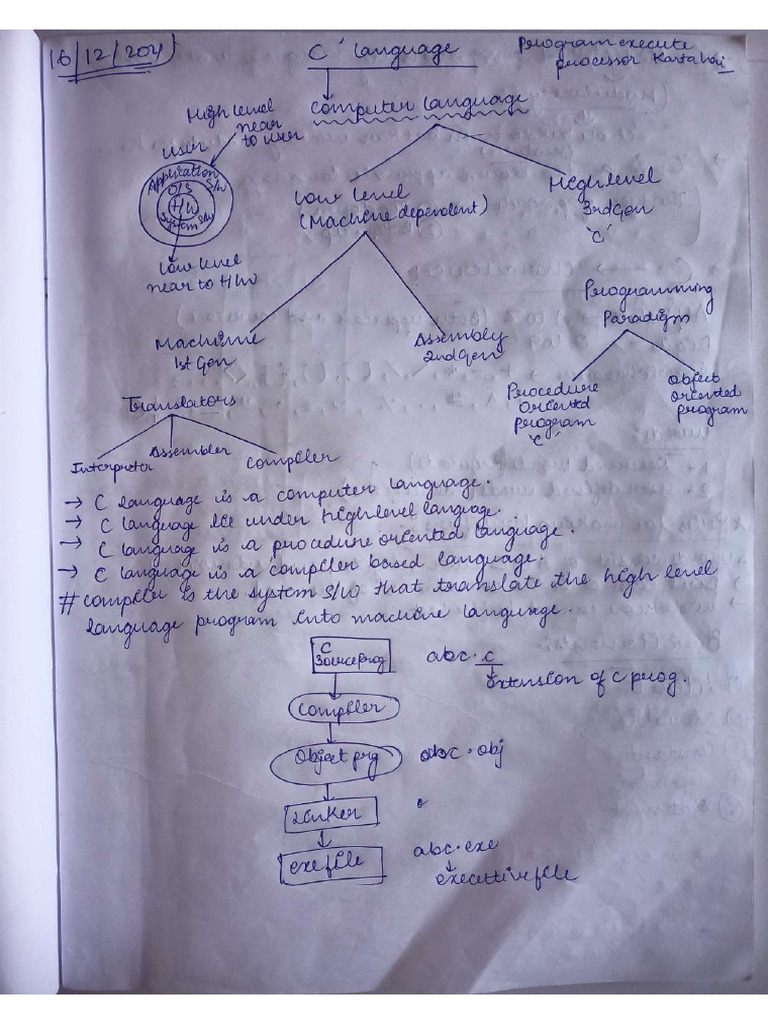 16/12/2021
C' language
Program execute
processor Karta hai
computer language
High level
near
to user
User
Application
S/W
O/S
H/W
System S/W
Low level
near to H/W
Low level
(Machine dependent)
High level
3rd Gen
'C'
Machine
1st Gen
Assembly
2nd Gen
Programming
Paradigm
Procedure
oriented
program
'C'
Object
oriented
program
Translators
Interpreter
Assembler
Compiler
→ C language is a computer language.
→ C language lie under high level language.
→ C language is a procedure oriented language.
→ C language is a compiler based language.
# Compiler is the system S/W that translate the high level
language program into machine language.
C
Source prog
abc.c
Extension of C prog.
Compiler
Object prg
abc.obj
Linker
exe file
abc.exe
executtive file